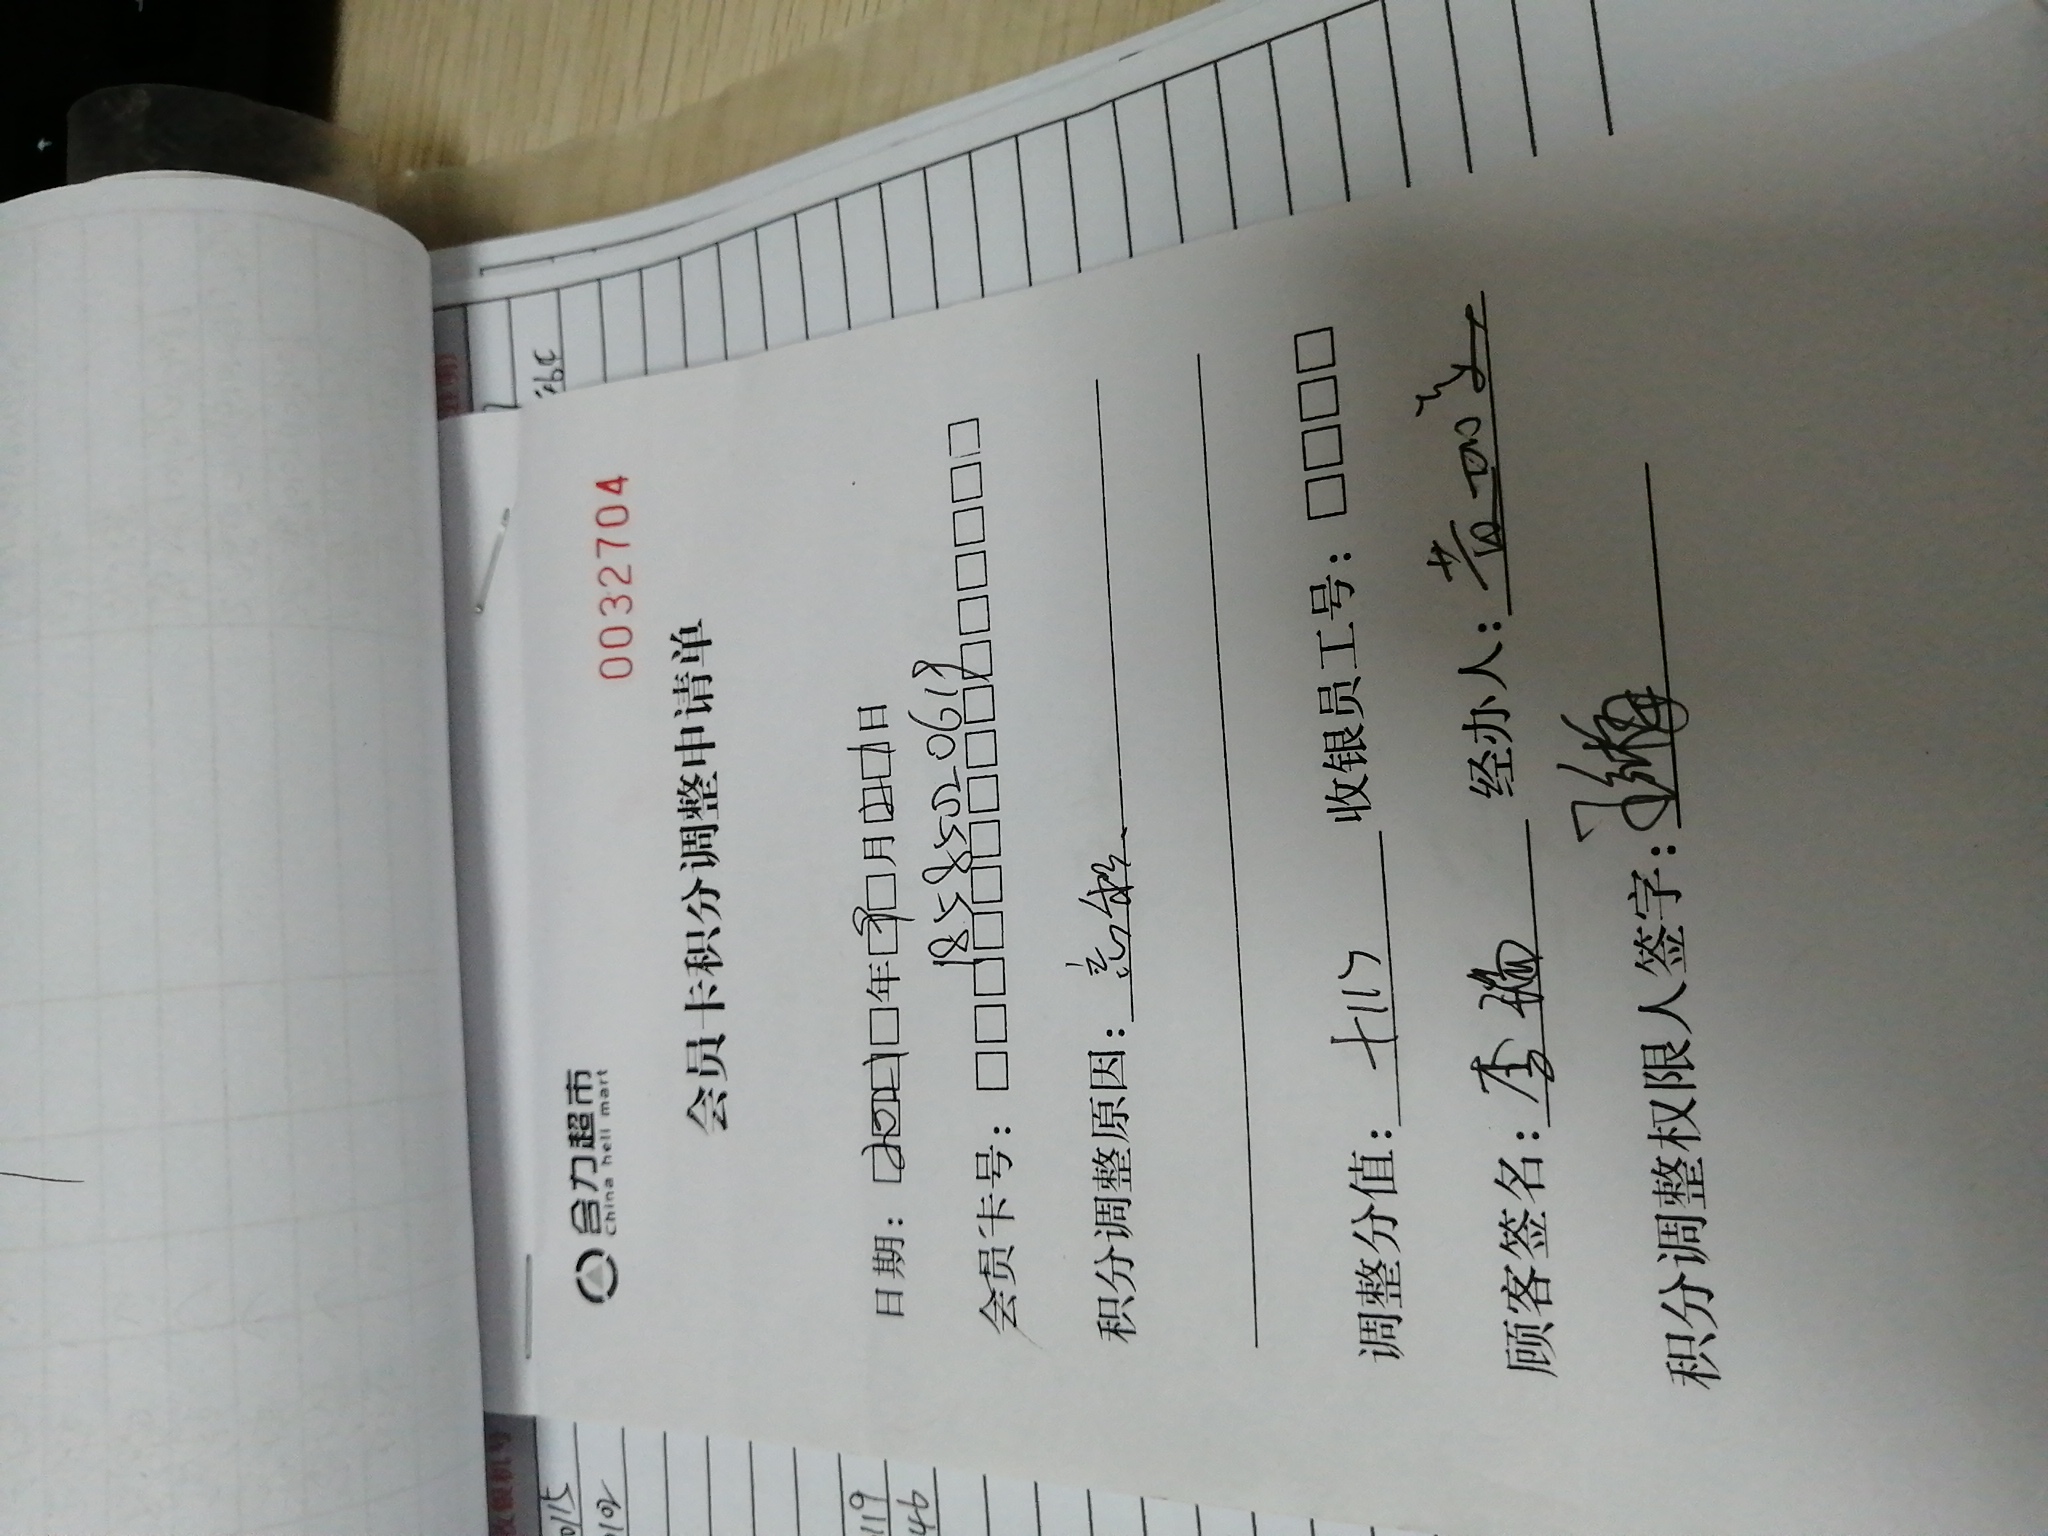 合力超市
China heli mart
0032704
会员卡积分调整申请单
日期：2021年9月21日
会员卡号：18585520619
积分调整原因：忘输
调整分值：+117 收银员工号：
顾客签名：李瑜 经办人：
积分调整权限人签字：
0115
0102
119
46